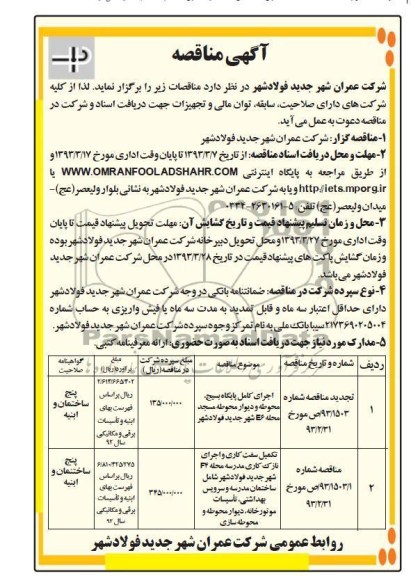 آگهی مناقصه
شرکت عمران شهر جدید فولادشهر در نظر دارد مناقصات زیر را برگزار نماید. لذا از کلیه
شرکت های دارای صلاحیت، سابقه، توان مالی و تجهیزات جهت دریافت اسناد و شرکت در
مناقصه دعوت به عمل می آید.
۱-مناقصه گزار: شرکت عمران شهر جدید فولادشهر
۲-مهلت و محل دریافت اسناد مناقصه: از تاریخ ۱۳۹۳/۳/۷ تا پایان وقت اداری مورخ ۱۳۹۳/۳/۱۷ و
از طریق مراجعه به پایگاه اینترنتی WWW.OMRANFOOLADSHAHR.COM یا
http://iets.mporg.ir و یا به شرکت عمران شهر جدید فولادشهر به نشانی بلوار ولیعصر(عج)-
میدان ولیعصر(عج) تلفن:
۳-محل و زمان تسلیم پیشنهاد قیمت و تاریخ گشایش آن: مهلت تحویل پیشنهاد قیمت تا پایان
وقت اداری مورخ ۱۳۹۳/۳/۲۷ و محل تحویل دبیرخانه شرکت عمران شهر جدید فولادشهر بوده
و زمان گشایش پاکت های پیشنهاد قیمت در تاریخ ۱۳۹۳/۳/۲۸ در محل شرکت عمران شهر جدید
فولادشهر می باشد.
۴-نوع سپرده شرکت در مناقصه: ضمانتنامه بانکی در وجه شرکت عمران شهر جدید فولادشهر
دارای حداقل اعتبار سه ماه و قابل تمدید به مدت سه ماه یا فیش واریزی به حساب شماره
۲۱۷۳۶۹۰۲۰۵۰۰۴ سیبا بانک ملی به نام تمرکز وجوه سپرده شرکت عمران شهر جدید فولادشهر.
۵-مدارک مورد نیاز جهت دریافت اسناد به صورت حضوری: ارائه معرفینامه کتبی.
ردیف
شماره و تاریخ مناقصه
موضوع مناقصه
مبلغ سپرده شرکت در مناقصه (ریال)
مبلغ برآورد (ریال)
گواهینامه صلاحیت
۱
تجدید مناقصه شماره ۹۳/۱۵۰۳/ص مورخ ۹۳/۲/۳۱
اجرای کامل پایگاه بسیج، محوطه و دیوار محوطه مسجد محله E6 شهر جدید فولادشهر
۱۳۵/۰۰۰/۰۰۰
ریال بر اساس فهرست بهای ابنیه و تأسیسات برقی و مکانیکی سال ۹۲
پنج ساختمان و ابنیه
۲
مناقصه شماره ۹۳/۱۵۰۳/۱/ص مورخ ۹۳/۲/۳۱
تکمیل سفت کاری و اجرای نازک کاری مدرسه محله F4 شهر جدید فولادشهر شامل ساختمان مدرسه و سرویس بهداشتی، تأسیسات موتورخانه، دیوار محوطه و محوطه سازی
۳۴۵/۰۰۰/۰۰۰
ریال بر اساس فهرست بهای ابنیه و تأسیسات برقی و مکانیکی سال ۹۲
پنج ساختمان و ابنیه
روابط عمومی شرکت عمران شهر جدید فولادشهر